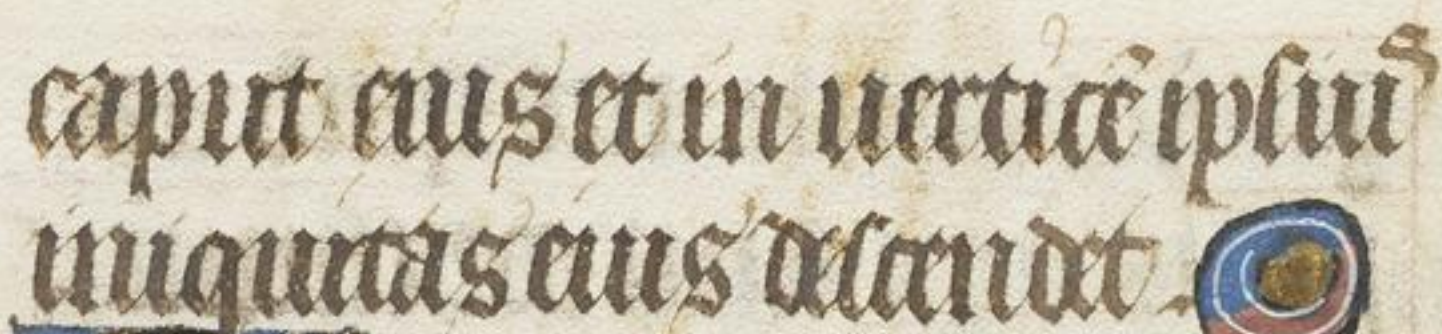 caput eius et in uerticē ipsius
iniquitas eius descendet.